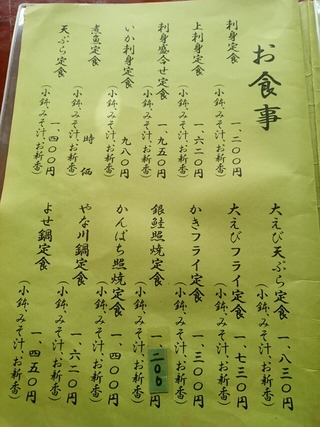 お食事
刺身定食 一、二〇〇円
(小鉢、みそ汁、お新香)
上刺身定食 一、六二〇円
(小鉢、みそ汁、お新香)
刺身盛合せ定食 一、九五〇円
(小鉢、みそ汁、お新香)
いか刺身定食 九八〇円
(小鉢、みそ汁、お新香)
煮魚定食 時価
(小鉢、みそ汁、お新香)
天ぷら定食 一、四〇〇円
(小鉢、みそ汁、お新香)
大えび天ぷら定食 一、八三〇円
(小鉢、みそ汁、お新香)
大えびフライ定食 一、七三〇円
(小鉢、みそ汁、お新香)
かきフライ定食 一、三〇〇円
(小鉢、みそ汁、お新香)
銀鮭照焼定食 一、二〇〇円
(小鉢、みそ汁、お新香)
かんぱち照焼定食 一、四〇〇円
(小鉢、みそ汁、お新香)
やな川鍋定食 一、六二〇円
(小鉢、みそ汁、お新香)
よせ鍋定食 一、四五〇円
(小鉢、みそ汁、お新香)